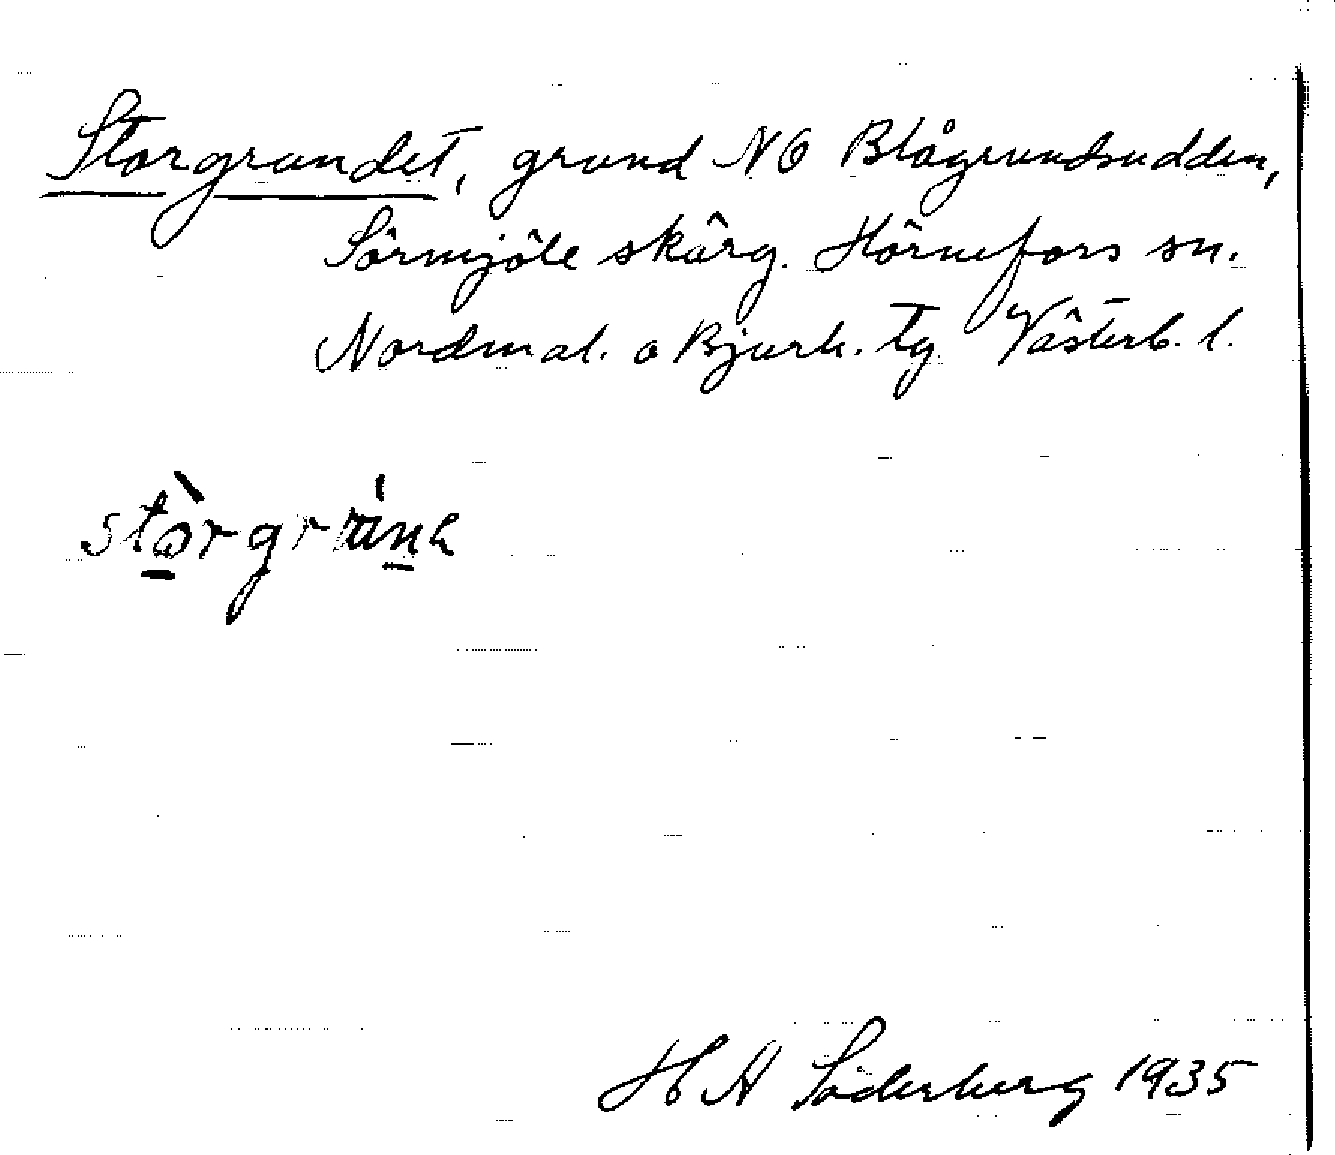 Storgrundet, grund NO Blågrundsudden,
Sörmjöle skärg. Hörnefors sn.
Nordmal. o Bjurh. Tg. Västerb. l.
HA Söderberg 1935